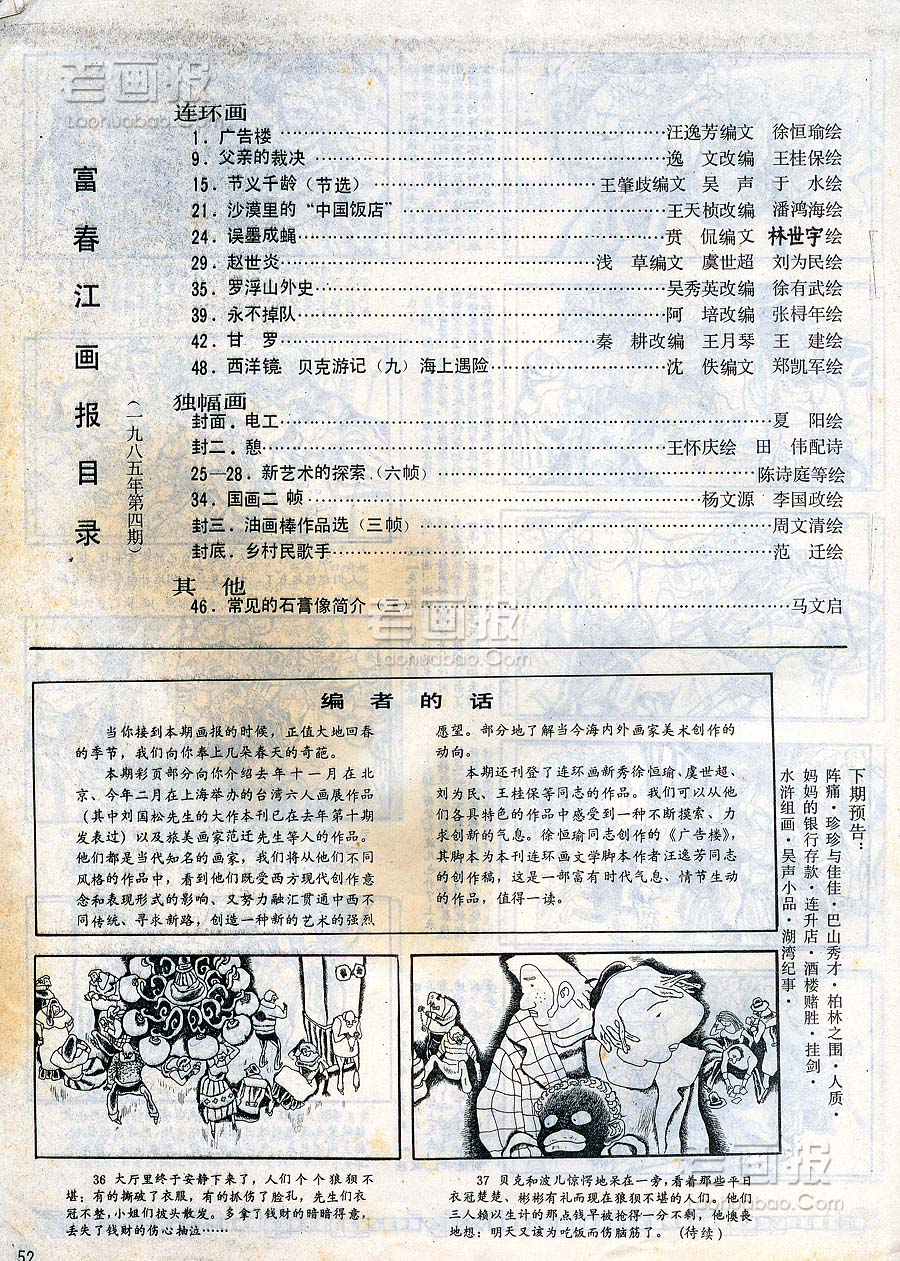 老画报
Laohuabao.Com
富春江画报目录
(一九八五年第四期)
连环画
1. 广告楼……汪逸芳编文 徐恒瑜绘
9. 父亲的裁决……逸 文改编 王桂保绘
15. 节义千龄(节选)……王肇歧编文 吴 声 于 水绘
21. 沙漠里的“中国饭店”……王天桢改编 潘鸿海绘
24. 误墨成蝇……贲 侃编文 林世宇绘
29. 赵世炎……浅 草编文 虞世超 刘为民绘
35. 罗浮山外史……吴秀英改编 徐有武绘
39. 永不掉队……阿 培改编 张桪年绘
42. 甘 罗……秦 耕改编 王月琴 王 建绘
48. 西洋镜 贝克游记(九)海上遇险……沈 佚编文 郑凯军绘
独幅画
封面. 电工……夏 阳绘
封二. 憩……王怀庆绘 田 伟配诗
25—28. 新艺术的探索(六帧)……陈诗庭等绘
34. 国画二 帧……杨文源 李国政绘
封三. 油画棒作品选(三帧)……周文清绘
封底. 乡村民歌手……范 迁绘
其 他
46. 常见的石膏像简介……马文启
老画报
Laohuabao.Com
编者的话
当你接到本期画报的时候,正值大地回春
的季节,我们向你奉上几朵春天的奇葩。
本期彩页部分向你介绍去年十一月在北
京、今年二月在上海举办的台湾六人画展作品
(其中刘国松先生的大作本刊已在去年第十期
发表过)以及旅美画家范迁先生等人的作品。
他们都是当代知名的画家,我们将从他们不同
风格的作品中,看到他们既受西方现代创作意
念和表现形式的影响、又努力融汇贯通中西不
同传统、寻求新路,创造一种新的艺术的强烈
愿望。部分地了解当今海内外画家美术创作的
动向。
本期还刊登了连环画新秀徐恒瑜、虞世超、
刘为民、王桂保等同志的作品。我们可以从他
们各具特色的作品中感受到一种不断摸索、力
求创新的气息。徐恒瑜同志创作的《广告楼》,
其脚本为本刊连环画文学脚本作者汪逸芳同志
的创作稿,这是一部富有时代气息、情节生动
的作品,值得一读。
下期预告:
阵痛·珍珍与佳佳·巴山秀才·柏林之围·人质·
妈妈的银行存款·连升店·酒楼赌胜·挂剑·
水浒组画·吴声小品·湖湾纪事·
36 大厅里终于安静下来了,人们个个狼狈不
堪:有的撕破了衣服,有的抓伤了脸孔,先生们衣
冠不整,小姐们披头散发。多拿了钱财的暗暗得意,
丢失了钱财的伤心抽泣……
37 贝克和波儿惊愕地呆在一旁,看着那些平日
衣冠楚楚、彬彬有礼而现在狼狈不堪的人们。他们
三人赖以生计的那点钱早被抢得一分不剩,他懊丧
地想:明天又该为吃饭而伤脑筋了。(待续)
老画报
Laohuabao.Com
52